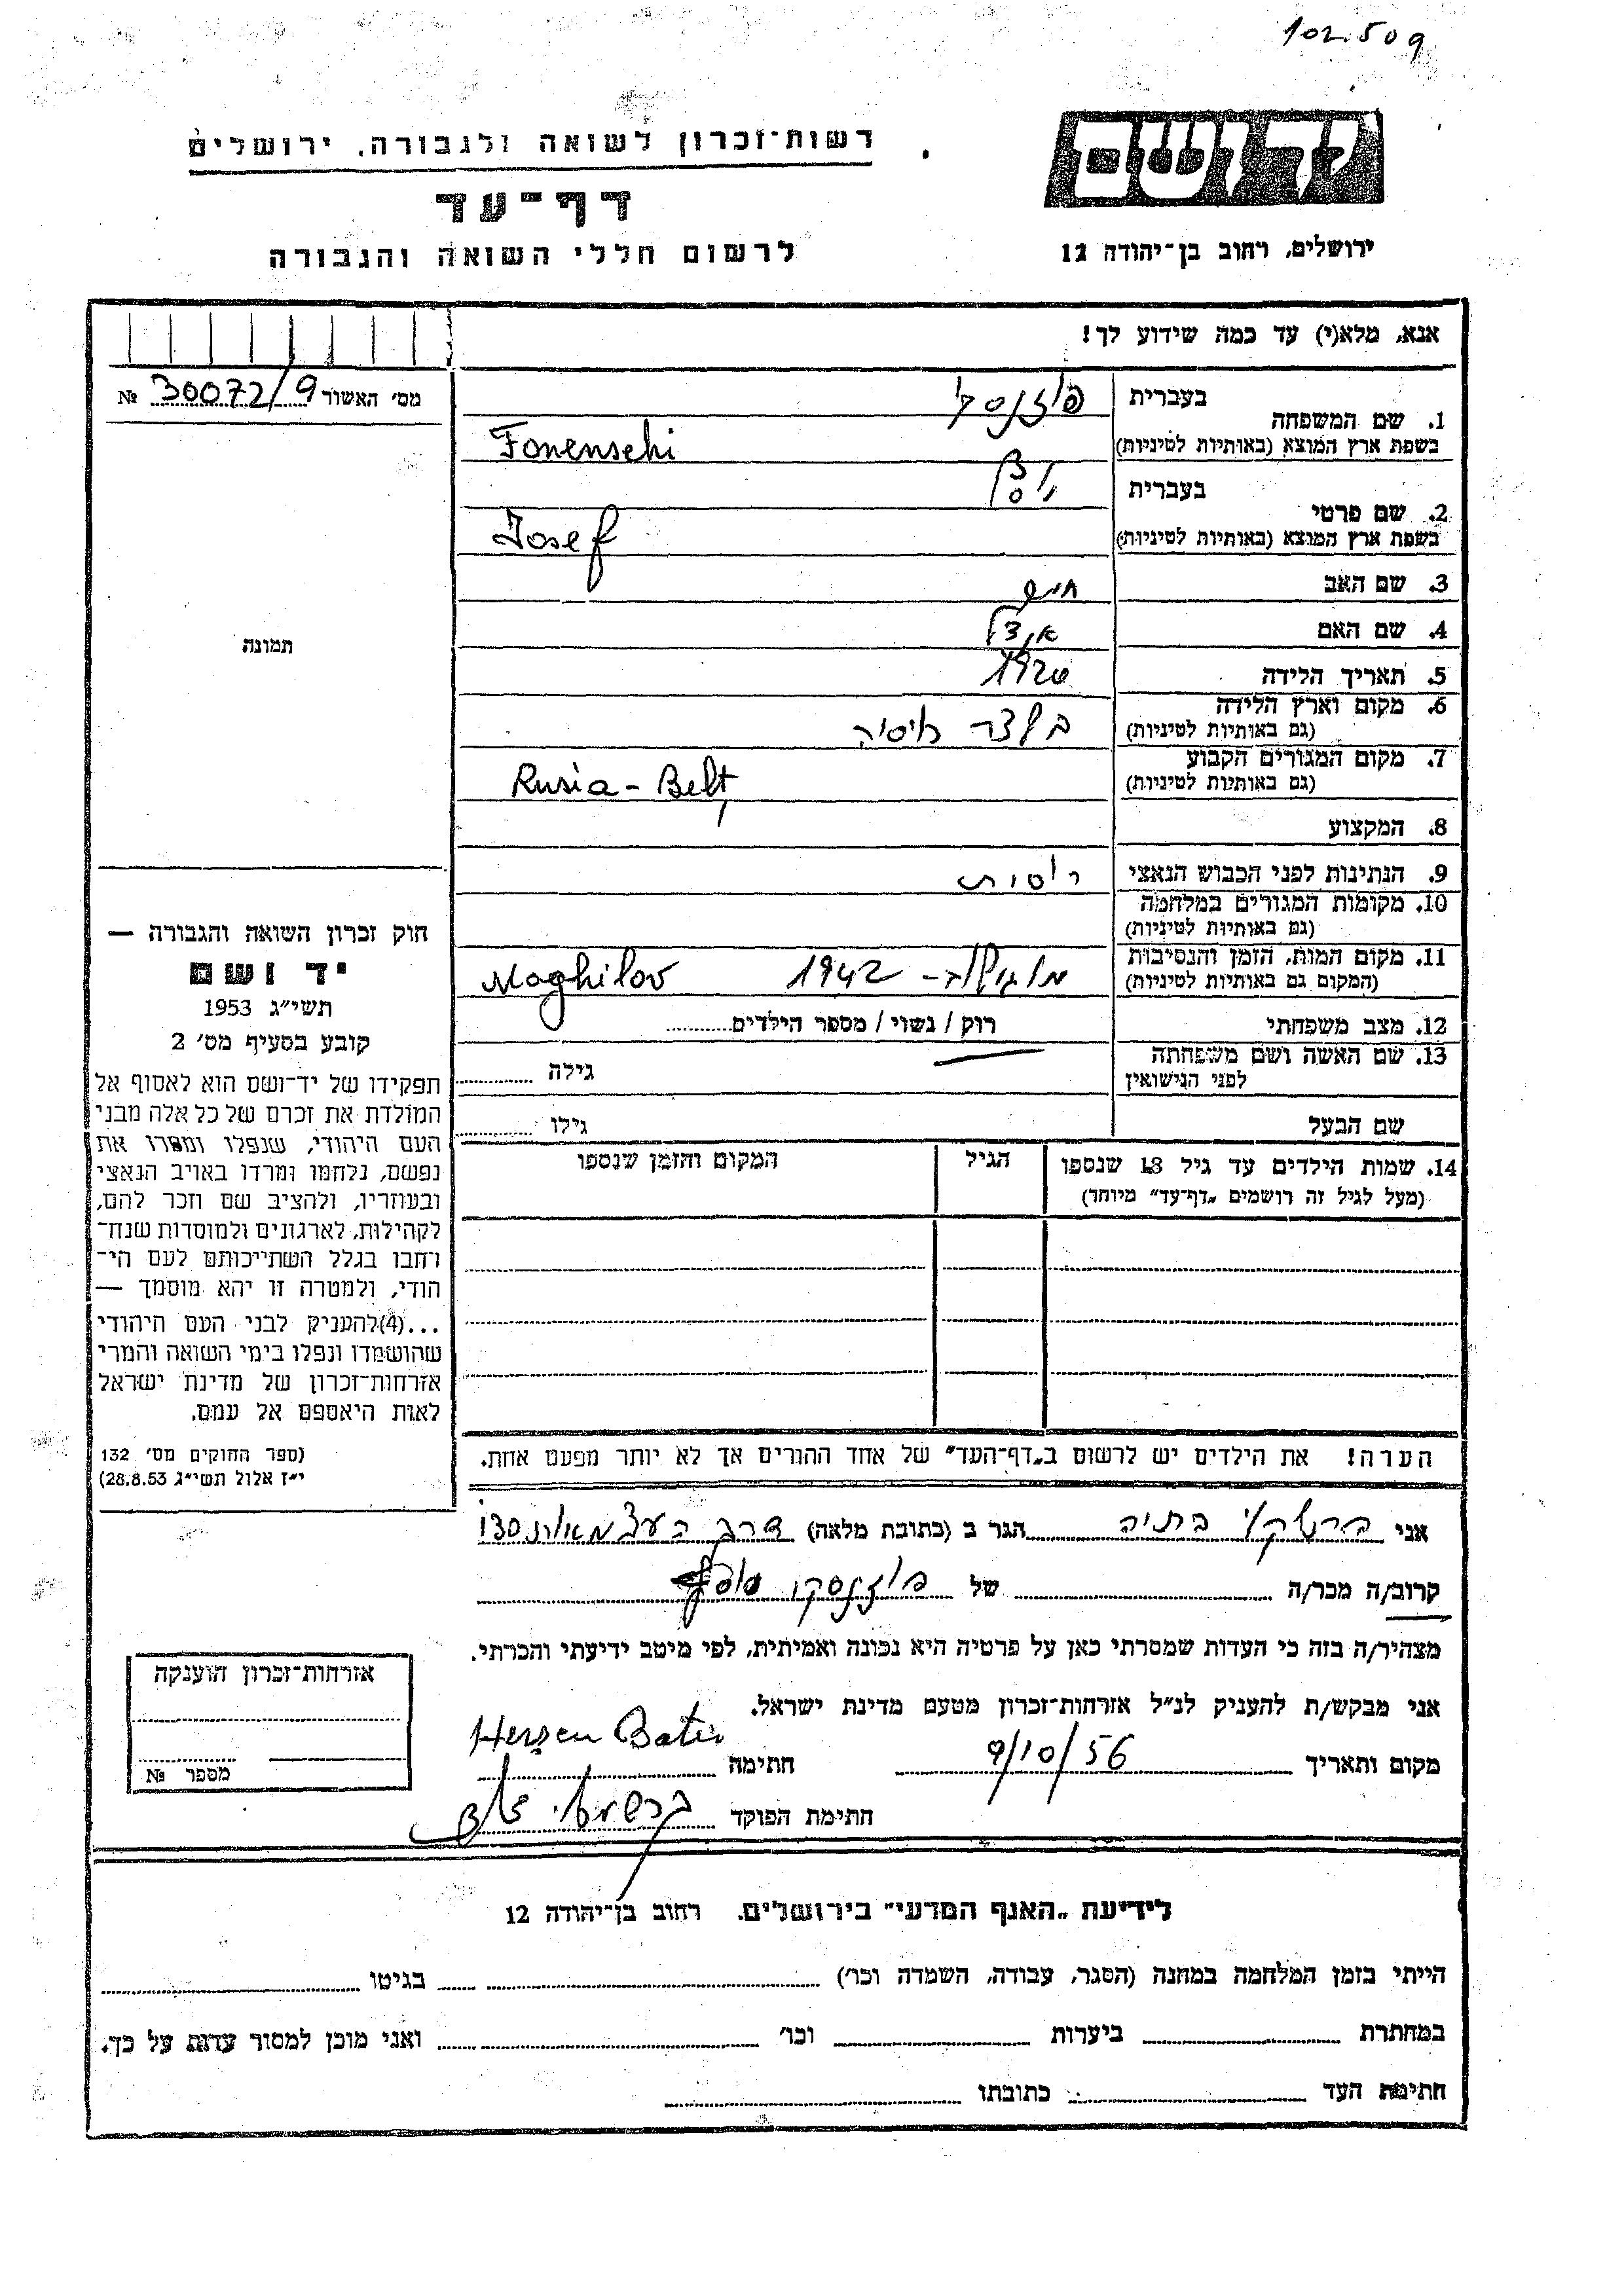 102.509
רשות-זכרון לשואה ולגבורה, ירושלים
ידושם
דף-עד
לרשום חללי השואה והגבורה
ירושלים, רחוב בן-יהודה 12
אנא, מלא(י) עד כמה שידוע לך!
מס׳ האשור 30072/9 №
1. שם המשפחה
בעברית
בשפת ארץ המוצא (באותיות לטיניות) Fonenschi
2. שם פרטי
בעברית יוסף
בשפת ארץ המוצא (באותיות לטיניות) Josef
3. שם האב חיים
4. שם האם
5. תאריך הלידה 1920
6. מקום וארץ הלידה
(גם באותיות לטיניות)
7. מקום המגורים הקבוע
(גם באותיות לטיניות) Rusia - Belt
8. המקצוע
9. הנתינות לפני הכבוש הנאצי רוסית
10. מקומות המגורים במלחמה
(גם באותיות לטיניות)
11. מקום המות, הזמן והנסיבות
(המקום גם באותיות לטיניות) מוגילוב - 1942 Moghilov
12. מצב משפחתי רוק / נשוי / מספר הילדים
13. שם האשה ושם משפחתה
לפני הנישואין גילה
שם הבעל גילו
14. שמות הילדים עד גיל 18 שנספו
(מעל לגיל זה רושמים „דף-עד״ מיוחד)
הגיל
המקום והזמן שנספו
הערה! את הילדים יש לרשום ב„דף-העד״ של אחד ההורים אך לא יותר מפעם אחת.
תמונה
חוק זכרון השואה והגבורה —
יד ושם
תשי״ג 1953
קובע בסעיף מס׳ 2
תפקידו של יד-ושם הוא לאסוף אל
המולדת את זכרם של כל אלה מבני
העם היהודי, שנפלו ומסרו את
נפשם, נלחמו ומרדו באויב הנאצי
ובעוזריו, ולהציב שם וזכר להם,
לקהילות, לארגונים ולמוסדות שנח-
רחבו בגלל השתייכותם לעם הי-
הודי, ולמטרה זו יהא מוסמך —
...(4)להעניק לבני העם היהודי
שהושמדו ונפלו בימי השואה והמרי
אזרחות-זכרון של מדינת ישראל
לאות היאספם אל עמם.
(ספר החוקים מס׳ 132
י״ז אלול תשי״ג 28.8.53)
אני בתיה הגר ב (כתובת מלאה) דרך העצמאות
קרוב/ה מכר/ה של יוסף
מצהיר/ה בזה כי העדות שמסרתי כאן על פרטיה היא נכונה ואמיתית, לפי מיטב ידיעתי והכרתי.
אני מבקש/ת להעניק לנ״ל אזרחות-זכרון מטעם מדינת ישראל.
מקום ותאריך 9/10/56 חתימה
חתימת הפוקד
אזרחות-זכרון הוענקה
מספר №
לידיעת „האגף המדעי״ בירושלים. רחוב בן-יהודה 12
הייתי בזמן המלחמה במחנה (הסגר, עבודה, השמדה וכו׳) בגיטו
במחתרת ביערות וכו׳ ואני מוכן למסור עדות על כך.
חתימת העד כתובתו